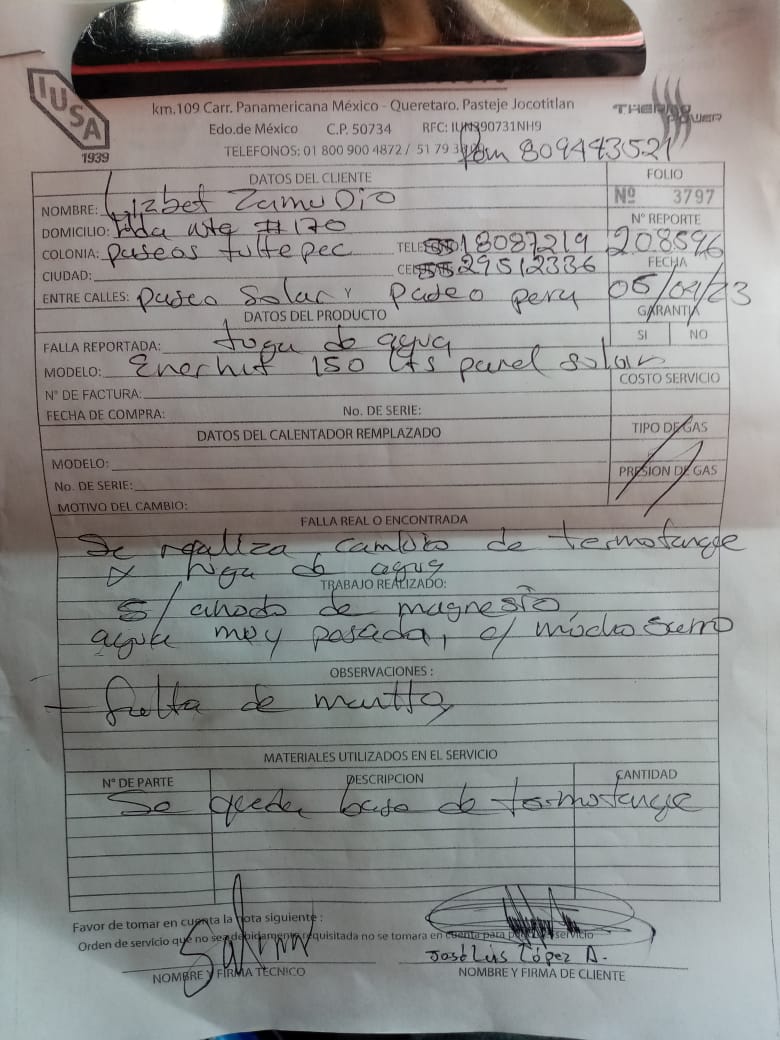 IUSA
1939
km.109 Carr. Panamericana México - Queretaro. Pasteje Jocotitlan
Edo.de México C.P. 50734 RFC: IUN390731NH9
TELEFONOS: 01 800 900 4872 / 51 79 3
809443521
THERMO POWER
DATOS DEL CLIENTE
FOLIO
Nº 3797
NOMBRE: Lizbet Zamudio
Nº REPORTE
208596
DOMICILIO: #170
COLONIA: Paseos tultepec TELE 18087219
CEL 29512336
FECHA
CIUDAD:
ENTRE CALLES: Paseo Solar y Paseo peru
05/09/23
DATOS DEL PRODUCTO
GARANTIA
SI NO
FALLA REPORTADA: fuga de agua
MODELO: 150 lts panel solar
COSTO SERVICIO
N° DE FACTURA:
FECHA DE COMPRA: No. DE SERIE:
DATOS DEL CALENTADOR REMPLAZADO
TIPO DE GAS
MODELO:
PRESION DE GAS
No. DE SERIE:
MOTIVO DEL CAMBIO:
FALLA REAL O ENCONTRADA
Se realiza cambio de termotanque
x fuga de agua
TRABAJO REALIZADO:
s/ anodo de magnesio
agua muy pesada, c/ mucho sarro
OBSERVACIONES :
- falta de mantto,
MATERIALES UTILIZADOS EN EL SERVICIO
N° DE PARTE DESCRIPCION CANTIDAD
Se queda base de termotanque
Favor de tomar en cuenta la nota siguiente :
Orden de servicio que no sea debidamente requisitada no se tomara en cuenta para pago de servicio
José Luis López A.
NOMBRE Y FIRMA TECNICO NOMBRE Y FIRMA DE CLIENTE